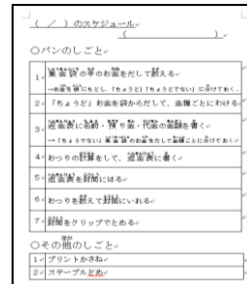 ( / ) のスケジュール
( )
○パンのしごと
1 集金袋の中のお金をだして数える
→お金を袋にもどし、「ちょうど」「ちょうどでない」に分けておく
2 「ちょうど」お金を袋からだして、金種ごとにわける
3 返金表に名前・預り金・代金の金額を書く
→「ちょうでない」集金袋のお金をだして金種ごとに分けておく。
4 おつりの計算をして、返金表に書く
5 返金表を封筒にはる
6 おつりを数えて封筒にいれる
7 封筒をクリップでとめる
○その他のしごと
1 プリントかさね
2 ステープルどめ